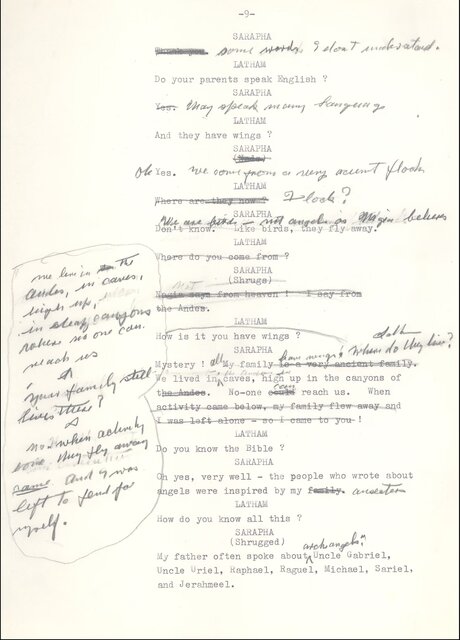 -9-
SARAPHA
Thank you. some words I don't understand.
LATHAM
Do your parents speak English ?
SARAPHA
Yes. They speak many languages
LATHAM
And they have wings ?
SARAPHA
(Nods)
Oh Yes. We come from a very ancient flock
LATHAM
Where are they now ? Flock?
SARAPHA
We are birds - not angels as Migin believes
Don't know. Like birds, they fly away.
LATHAM
Where do you come from ?
SARAPHA
(Shrugs)
Magin says from heaven ! I say from
the Andes.
LATHAM
How is it you have wings ?
SARAPHA
Mystery ! all My family have wings. Where do they live?
is a very ancient family.
We lived in caves, high up in the canyons of
the Andes. No-one could can reach us. When
activity came below, my family flew away and
I was left alone - so i came to you !
LATHAM
Do you know the Bible ?
SARAPHA
Oh yes, very well - the people who wrote about
angels were inspired by my family. ancestors
LATHAM
How do you know all this ?
SARAPHA
(Shrugged)
My father often spoke about archangels: Uncle Gabriel,
Uncle Uriel, Raphael, Raguel, Michael, Sariel,
and Jerahmeel.
We live in the
Andes, in caves,
high up,
in steep canyons
where no one can
reach us
Your family still
lives there?
No. When activity
came they fly away
and I was
left to fend for
myself.